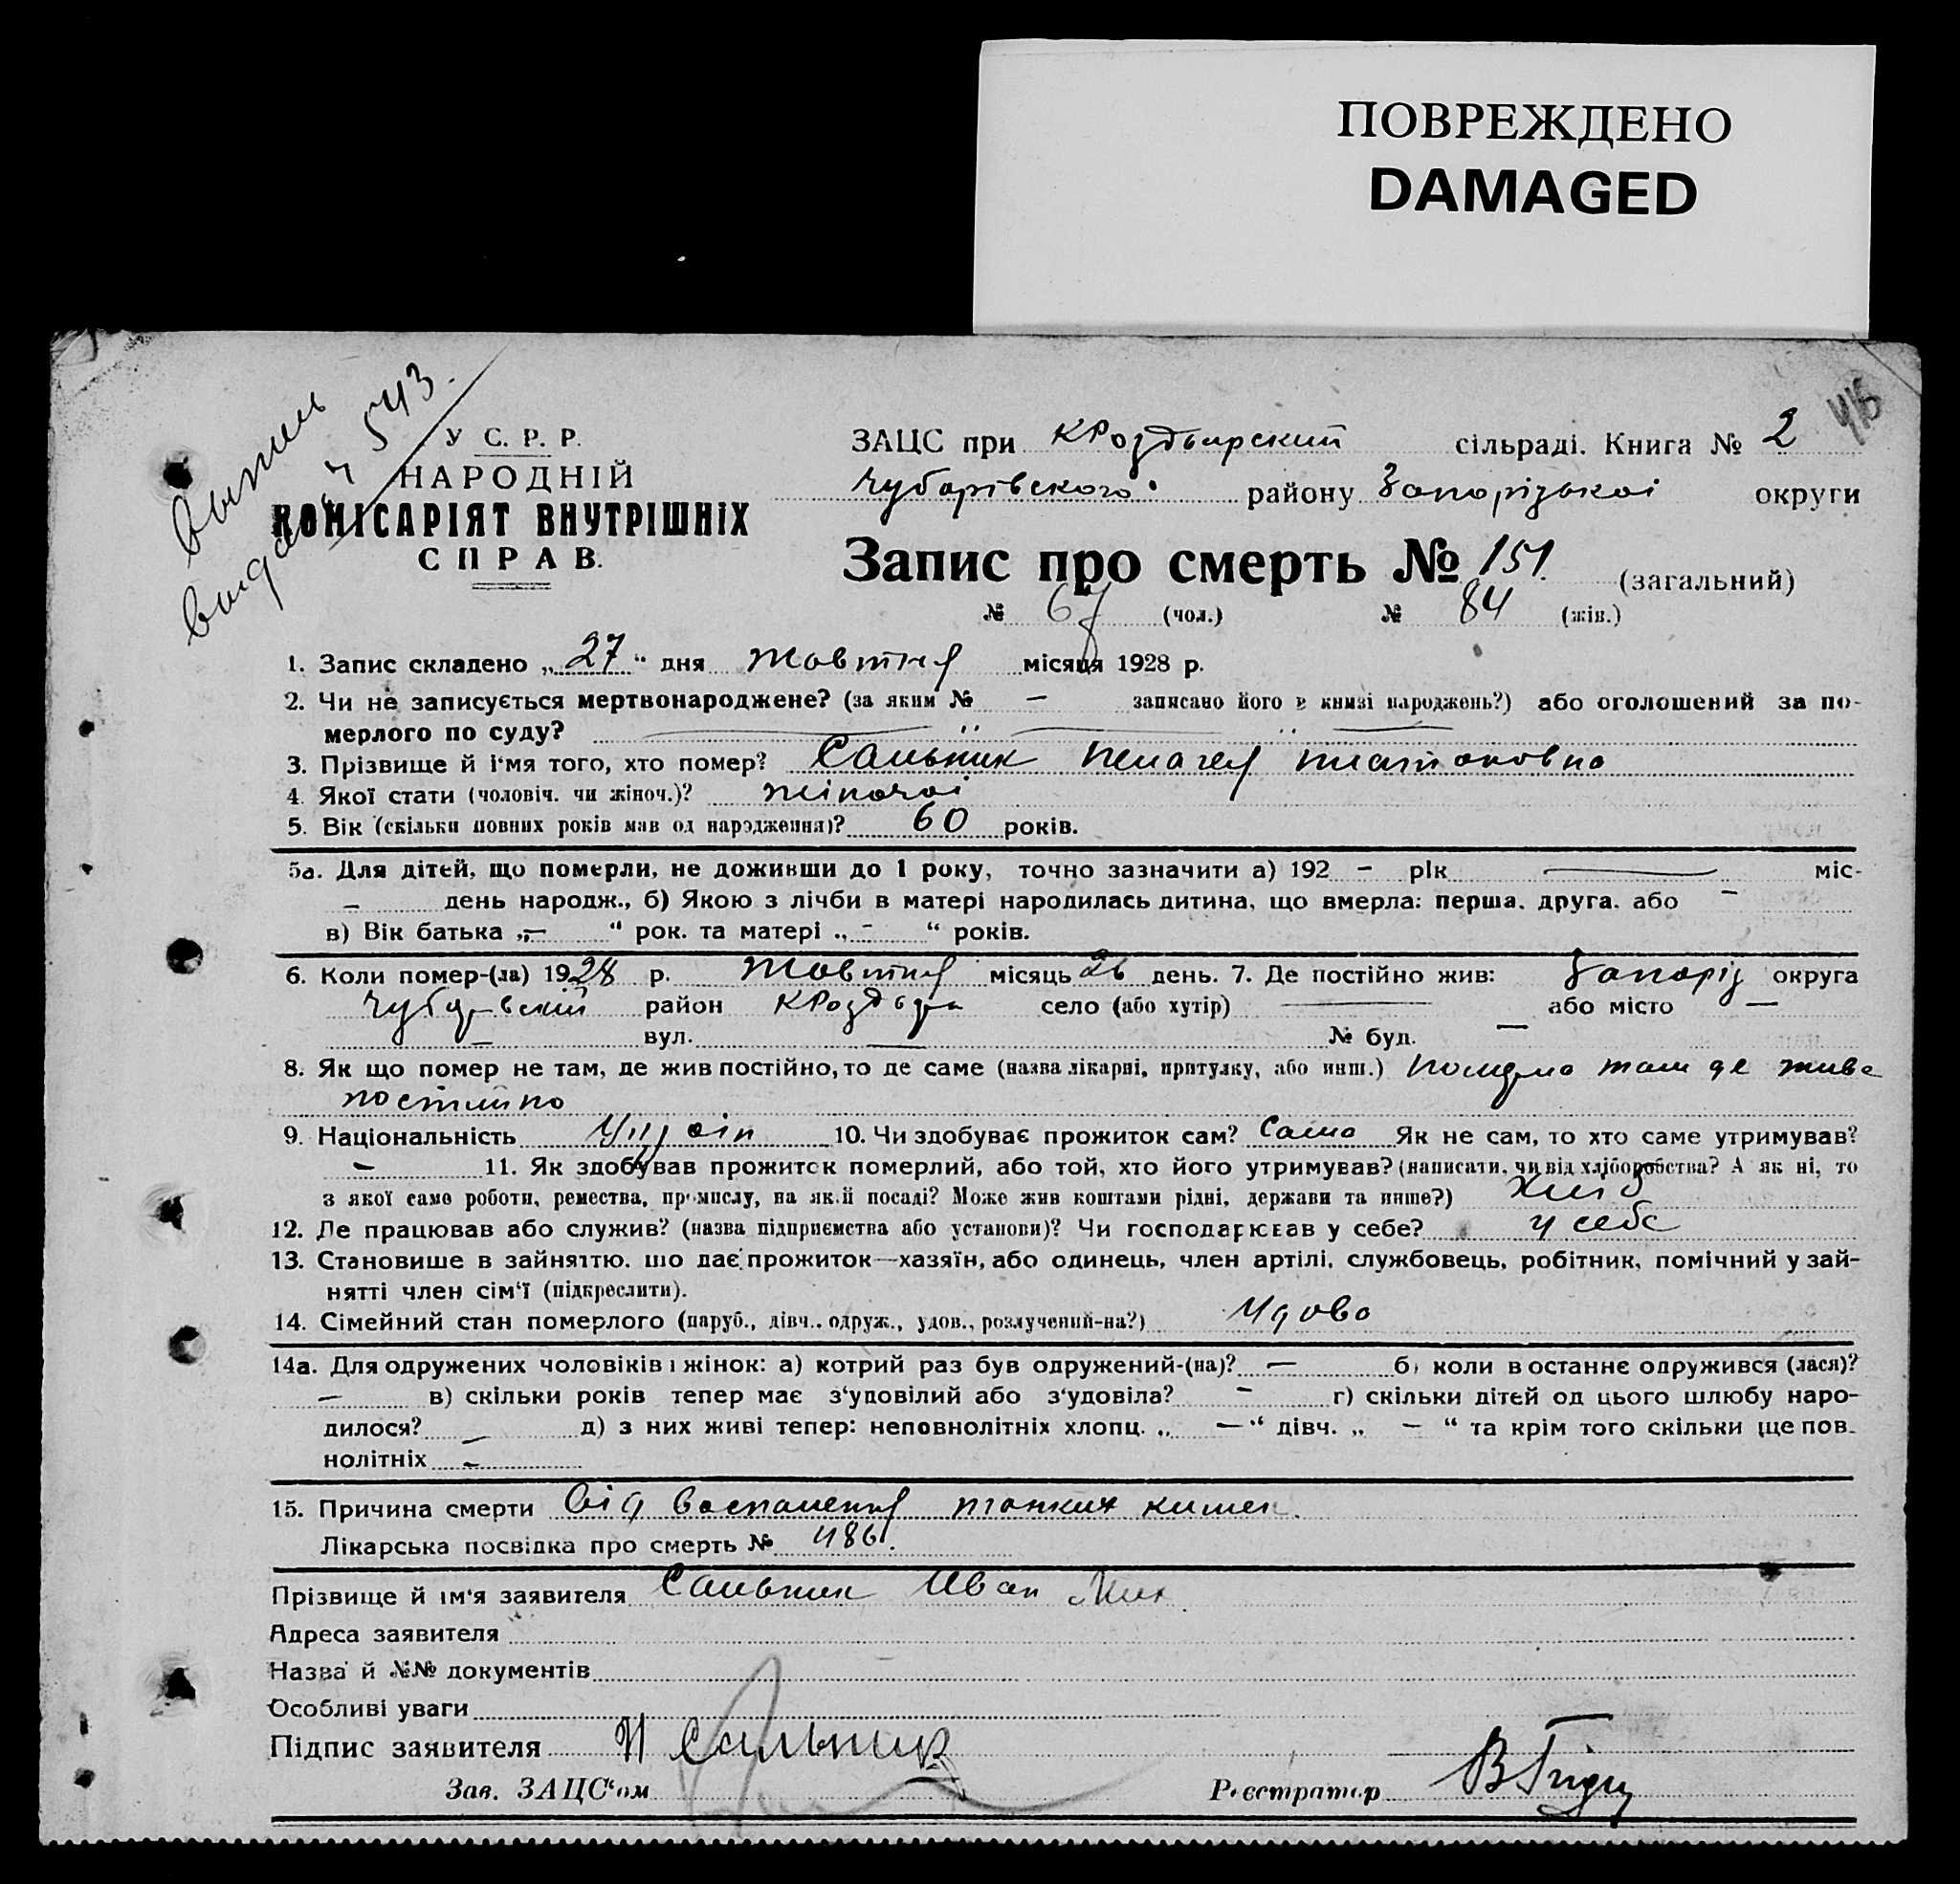 ПОВРЕЖДЕНО
DAMAGED
У С. Р. Р.
НАРОДНІЙ
КОМІСАРІЯТ ВНУТРІШНІХ
СПРАВ.
543
ЗАЦС при КРоздорский сільраді. Книга № 2
Чубарівского району Запорізькоі округи
Запис про смерть № 151. (загальний)
№ 67 (чол.) № 84 (жін.)
1. Запис складено „ 27 “ дня жовтня місяця 1928 р.
2. Чи не записується мертвонароджене? (за яким № — записано його в книзі народжень?) або оголошений за по-
мерлого по суду?
3. Прізвище й і‘мя того, хто помер? Сальник Пелагея Платоновна
4. Якої стати (чоловіч. чи жіноч.)? жіночоі
5. Вік (скільки повних років мав од народження)? 60 років.
5а. Для дітей, що померли, не доживши до 1 року, точно зазначити а) 192 – рік — міс-
– день народж., б) Якою з лічби в матері народилась дитина, що вмерла: перша, друга, або –
в) Вік батька „–“ рок. та матері „–“ років.
6. Коли помер-(ла) 1928 р. Жовтня місяць 26 день. 7. Де постійно жив: Запоріз округа
Чубарівский район КРоздори село (або хутір) — або місто —
– вул. — № буд. —
8. Як що помер не там, де жив постійно, то де саме (назва лікарні, притулку, або инш.) Померла там де жила
постійно
9. Національність Україн 10. Чи здобуває прожиток сам? Сама Як не сам, то хто саме утримував?
– 11. Як здобував прожиток померлий, або той, хто його утримував? (написати, чи від хліборобства? А як ні, то
з якої саме роботи, ремества, промислу, на якій посаді? Може жив коштами рідні, держави та инше?) Хліб
12. Де працював або служив? (назва підприємства або установи)? Чи господарював у себе? у себе
13. Становище в зайняттю, що дає прожиток—хазяїн, або одинець, член артілі, службовець, робітник, помічний у зай-
нятті член сім‘ї (підкреслити).
14. Сімейний стан померлого (паруб., дівч., одруж., удов., розлучений-на?) Удова
14а. Для одружених чоловіків і жінок: а) котрий раз був одружений-(на)? — б) коли в останнє одружився (лася)?
— в) скільки років тепер має з‘удовілий або з‘удовіла? – г) скільки дітей од цього шлюбу наро-
дилося? – д) з них живі тепер: неповнолітніх хлопц. „ —“ дівч. „ – “ та крім того скільки ще пов-
нолітніх –
15. Причина смерти Від воспаления тонких кишек.
Лікарська посвідка про смерть № 486.
Прізвище й ім‘я заявителя Сальник Иван Мих.
Адреса заявителя
Назва й №№ документів
Особливі уваги
Підпис заявителя И Сальник
Зав. ЗАЦС‘ом Реєстратор